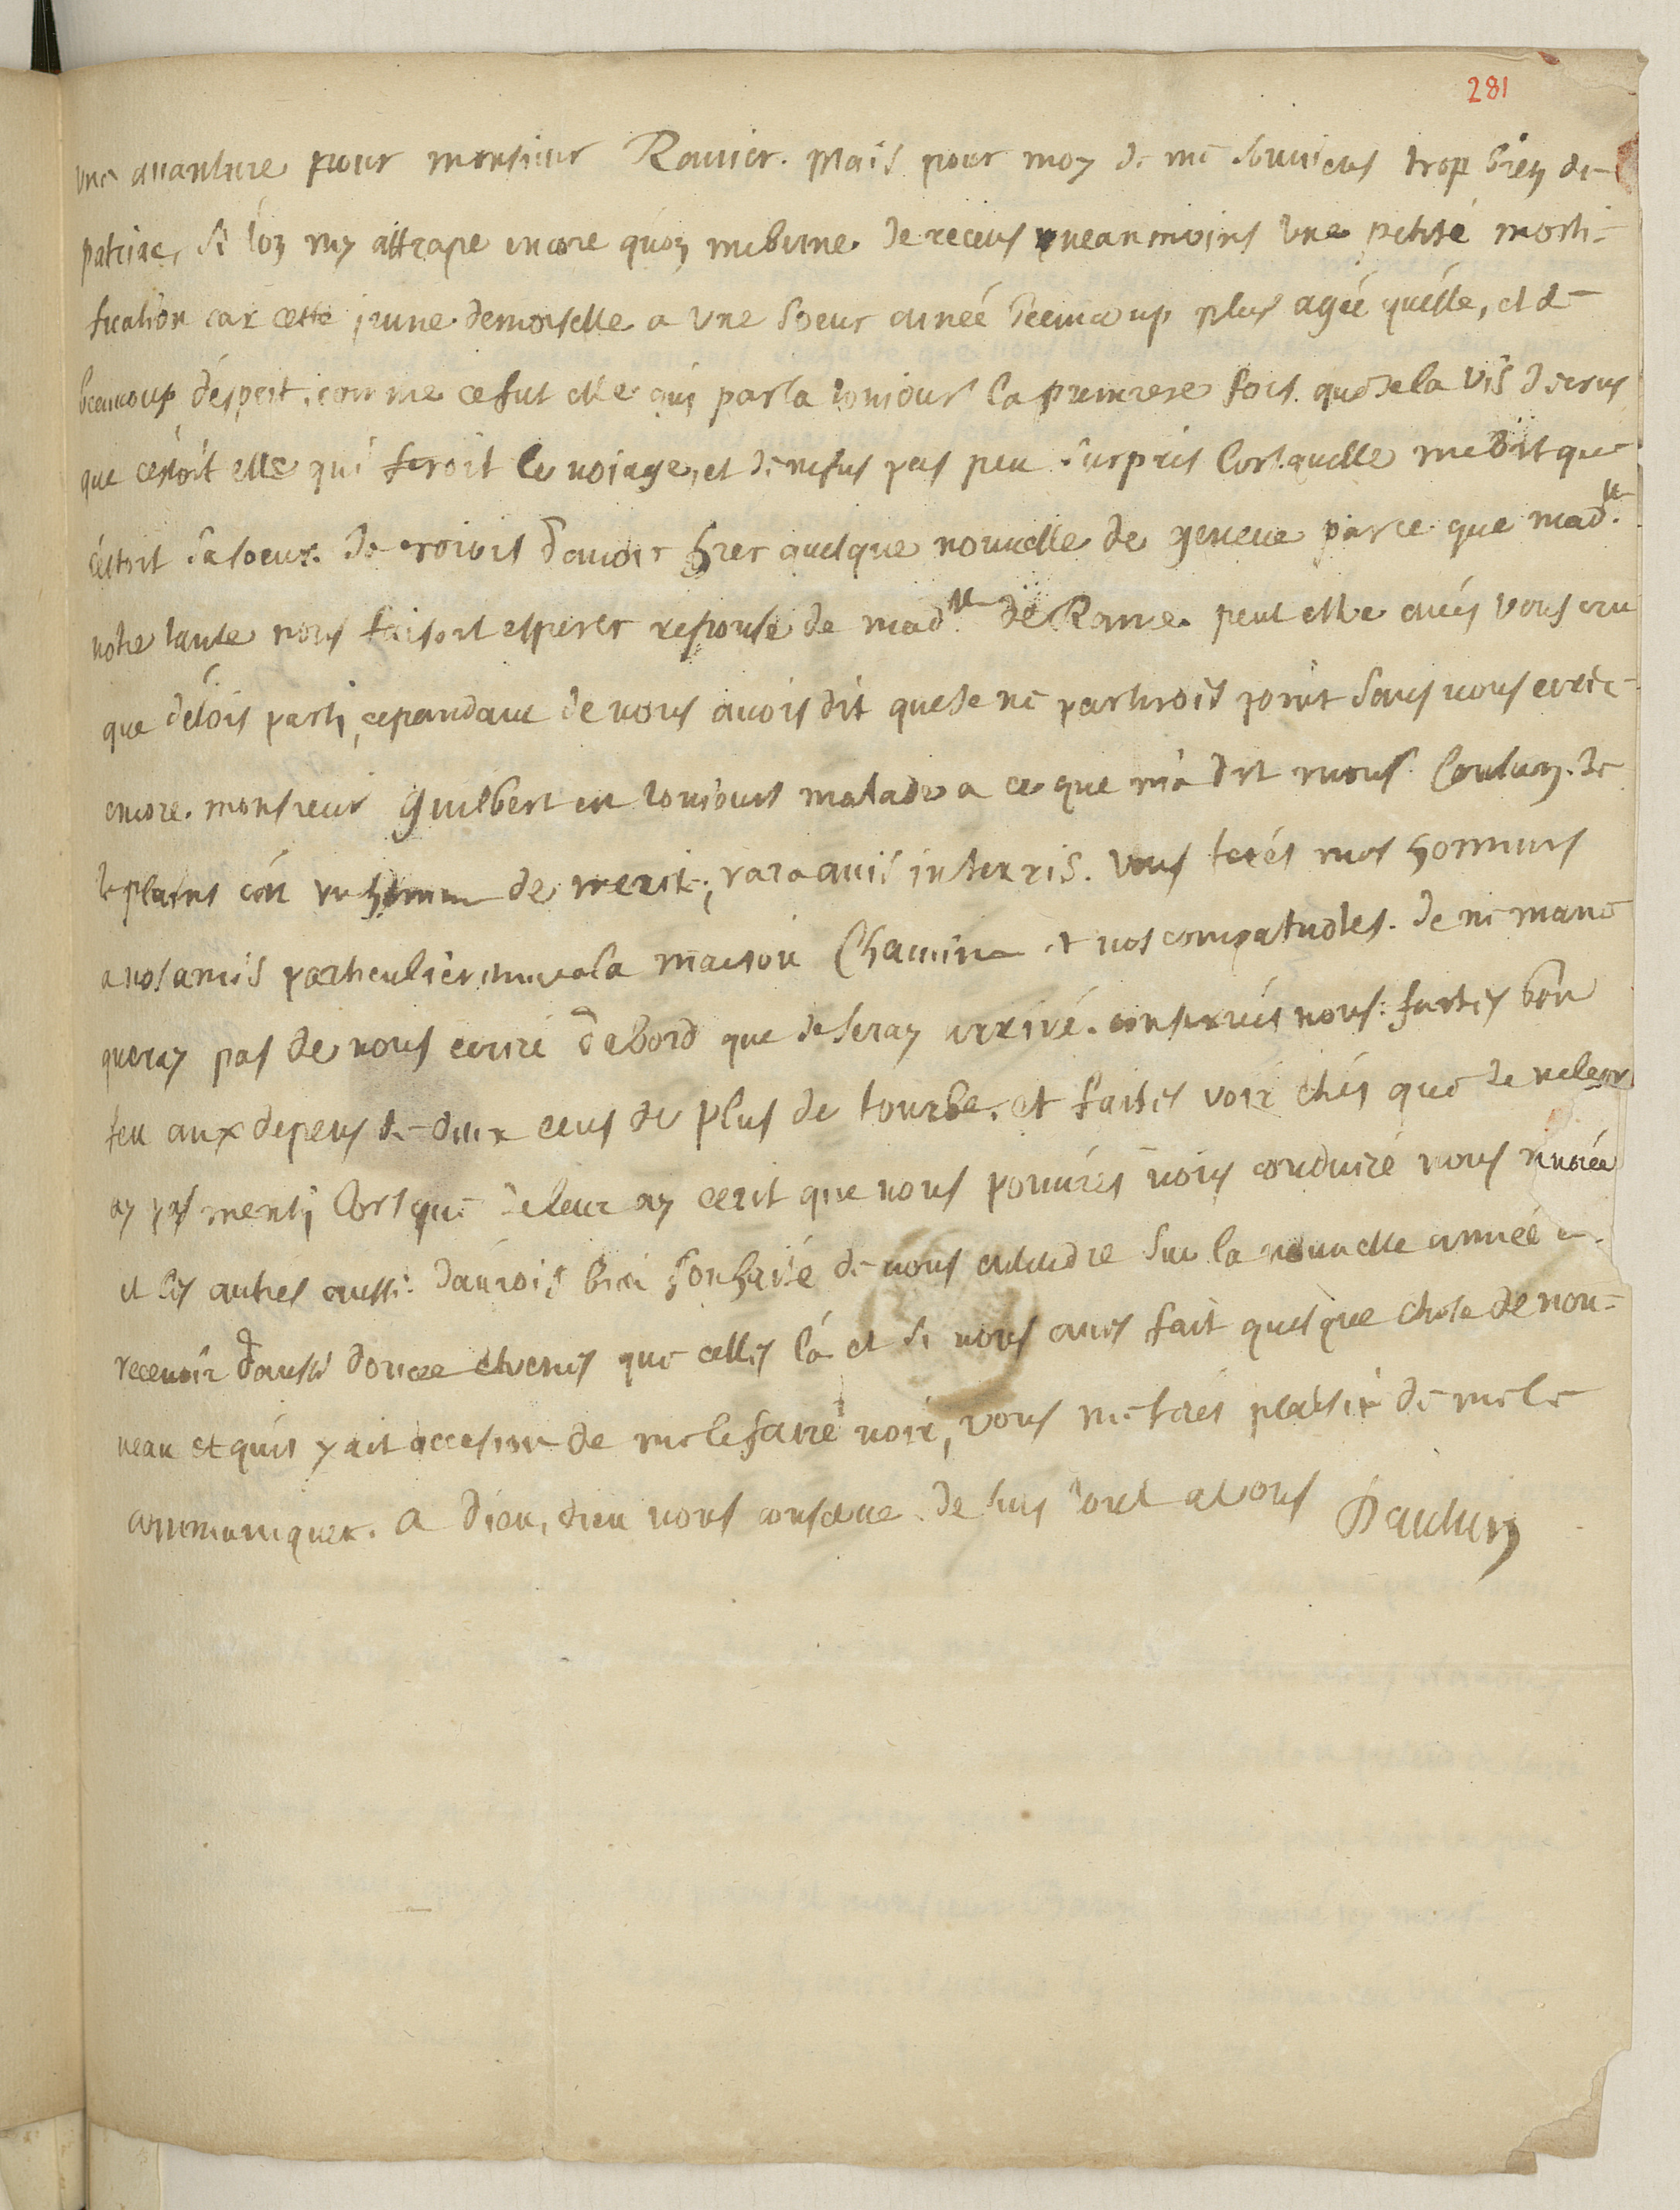 281
une auanture pour monsieur Rauier. Mais pour moy Je me souuiens trop bien de
patriae, si l'on my attrape encore qu'on me berne. Je receus neanmoins Une petite morti-
fication car cette jeune demoiselle a Une soeur ainée beaucoup plus agée quelle, et de
beaucoup d'esprit, comme ce fut elle qui parla toujours la premiere fois que Je la Vis Je crus
que c'estoit elle qui feroit le uoiage, et Je ne fus pas peu surpris lors quelle me dit que
c'estoit sa soeur. Je croiois d'auoir hier quelque nouuelle de geneue parce que mad.lle
notre tante nous faisoit esperer response de mad.lle de Rame. peut estre aués Vous cru
que J'étois parti, cependant Je uous auois dit que Je ne partirois point sans uous ecrire
encore. monsieur Guilbert est toujours malade a ce que m'a dit mons.r Couluy. Je
le plains c'est un homme de merite, rara auis in terris. Vous ferés mes honneurs
a nos amis particulierement a la maison Chauuin et nos compatriotes. Je ne man
queray pas de uous ecrire d'abord que Je seray arriué. conserués uous: faites bon
feu aux depens de deux ecus de plus de tourbe, et faites voir chés que Je ne leur
ay pas menti lors que Je leur ay ecrit que uous pouuiés uous conduire uous
et les autres aussi. J'aurois bien souhaité de uous entendre sur la nouuelle année et
receuoir d'aussi douces etrenes que celles là et si uous aués fait quelque chose de nou-
ueau et qu'il y ait occasion de me le faire uoir, vous me ferés plaisir de me le
communiquer. a Dieu, dieu uous conserue. Je suis tout a Vous